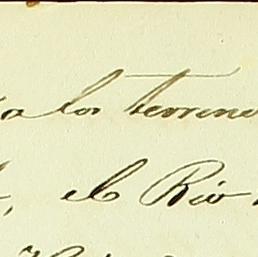 a los terreno
, el Rio